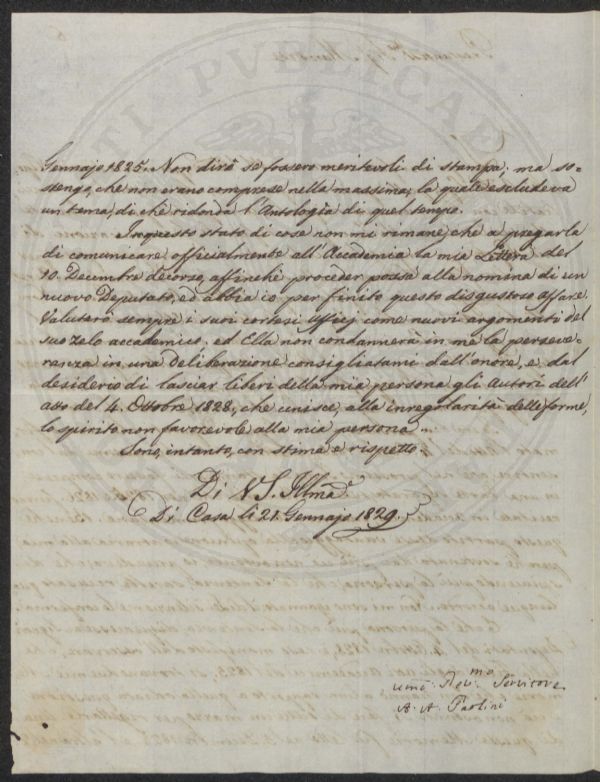 Gennajo 1825. Non dirò se fossero meritevoli di stampa; ma so-
stengo, che non erano comprese nella massima, la quale escludeva
un tema, di che ridonda l'Antologia di quel tempo.
In questo stato di cose non mi rimane, che a pregarla
di comunicare officialmente all'Accademia la mia Lettera del
10. Decembre decorso, affinchè procèder possa alla nomina di un
nuovo Deputato, ed abbia io per finito questo disgustoso affare.
Valuterò sempre i suoi cortesi Uffizj come nuovi argomenti del
suo zelo accademico: ed Ella non condannerà in me la perseve-
ranza in una deliberazione consigliatami dall'onore, e dal
desiderio di lasciar liberi della mia persona gli Autori dell'
atto del 4. Ottobre 1828, che unisce, alla inregolarità delle forme,
lo spirito non favorevole alla mia persona.
Sono, intanto, con stima e rispetto.
Di V. S. Illma
Di Casa li 21. Gennajo 1829.
Devmo Servitore
A. A. Paolini
PUBLICAE